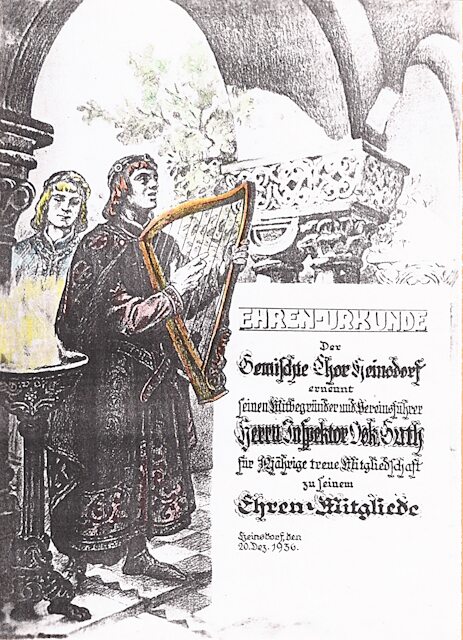 EHREN-URKUNDE
Der
Gemischte Chor Heinsdorf
ernennt
seinen Mitbegründer und Vereinsführer
Herrn Inspektor Osk. Guth
für jährige treue Mitgliedschaft
zu seinem
Ehren-Mitgliede
Heinsdorf, den
20. Dez. 1936.